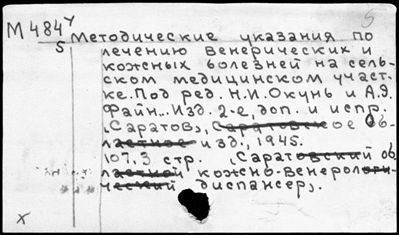 5
М 484У Методические указания по
5 лечению венерических и
кожных болезней на сель-
ском медицинском участ-
ке. Под ред. Н.И. Окунь и А.Э.
Файн... Изд. 2-е, доп. и испр.
(Саратов), Саратовское об-
ластное изд., 1945.
107,3 стр. (Саратовский об
ластной кожно-венероло-
ческий диспансер).
х